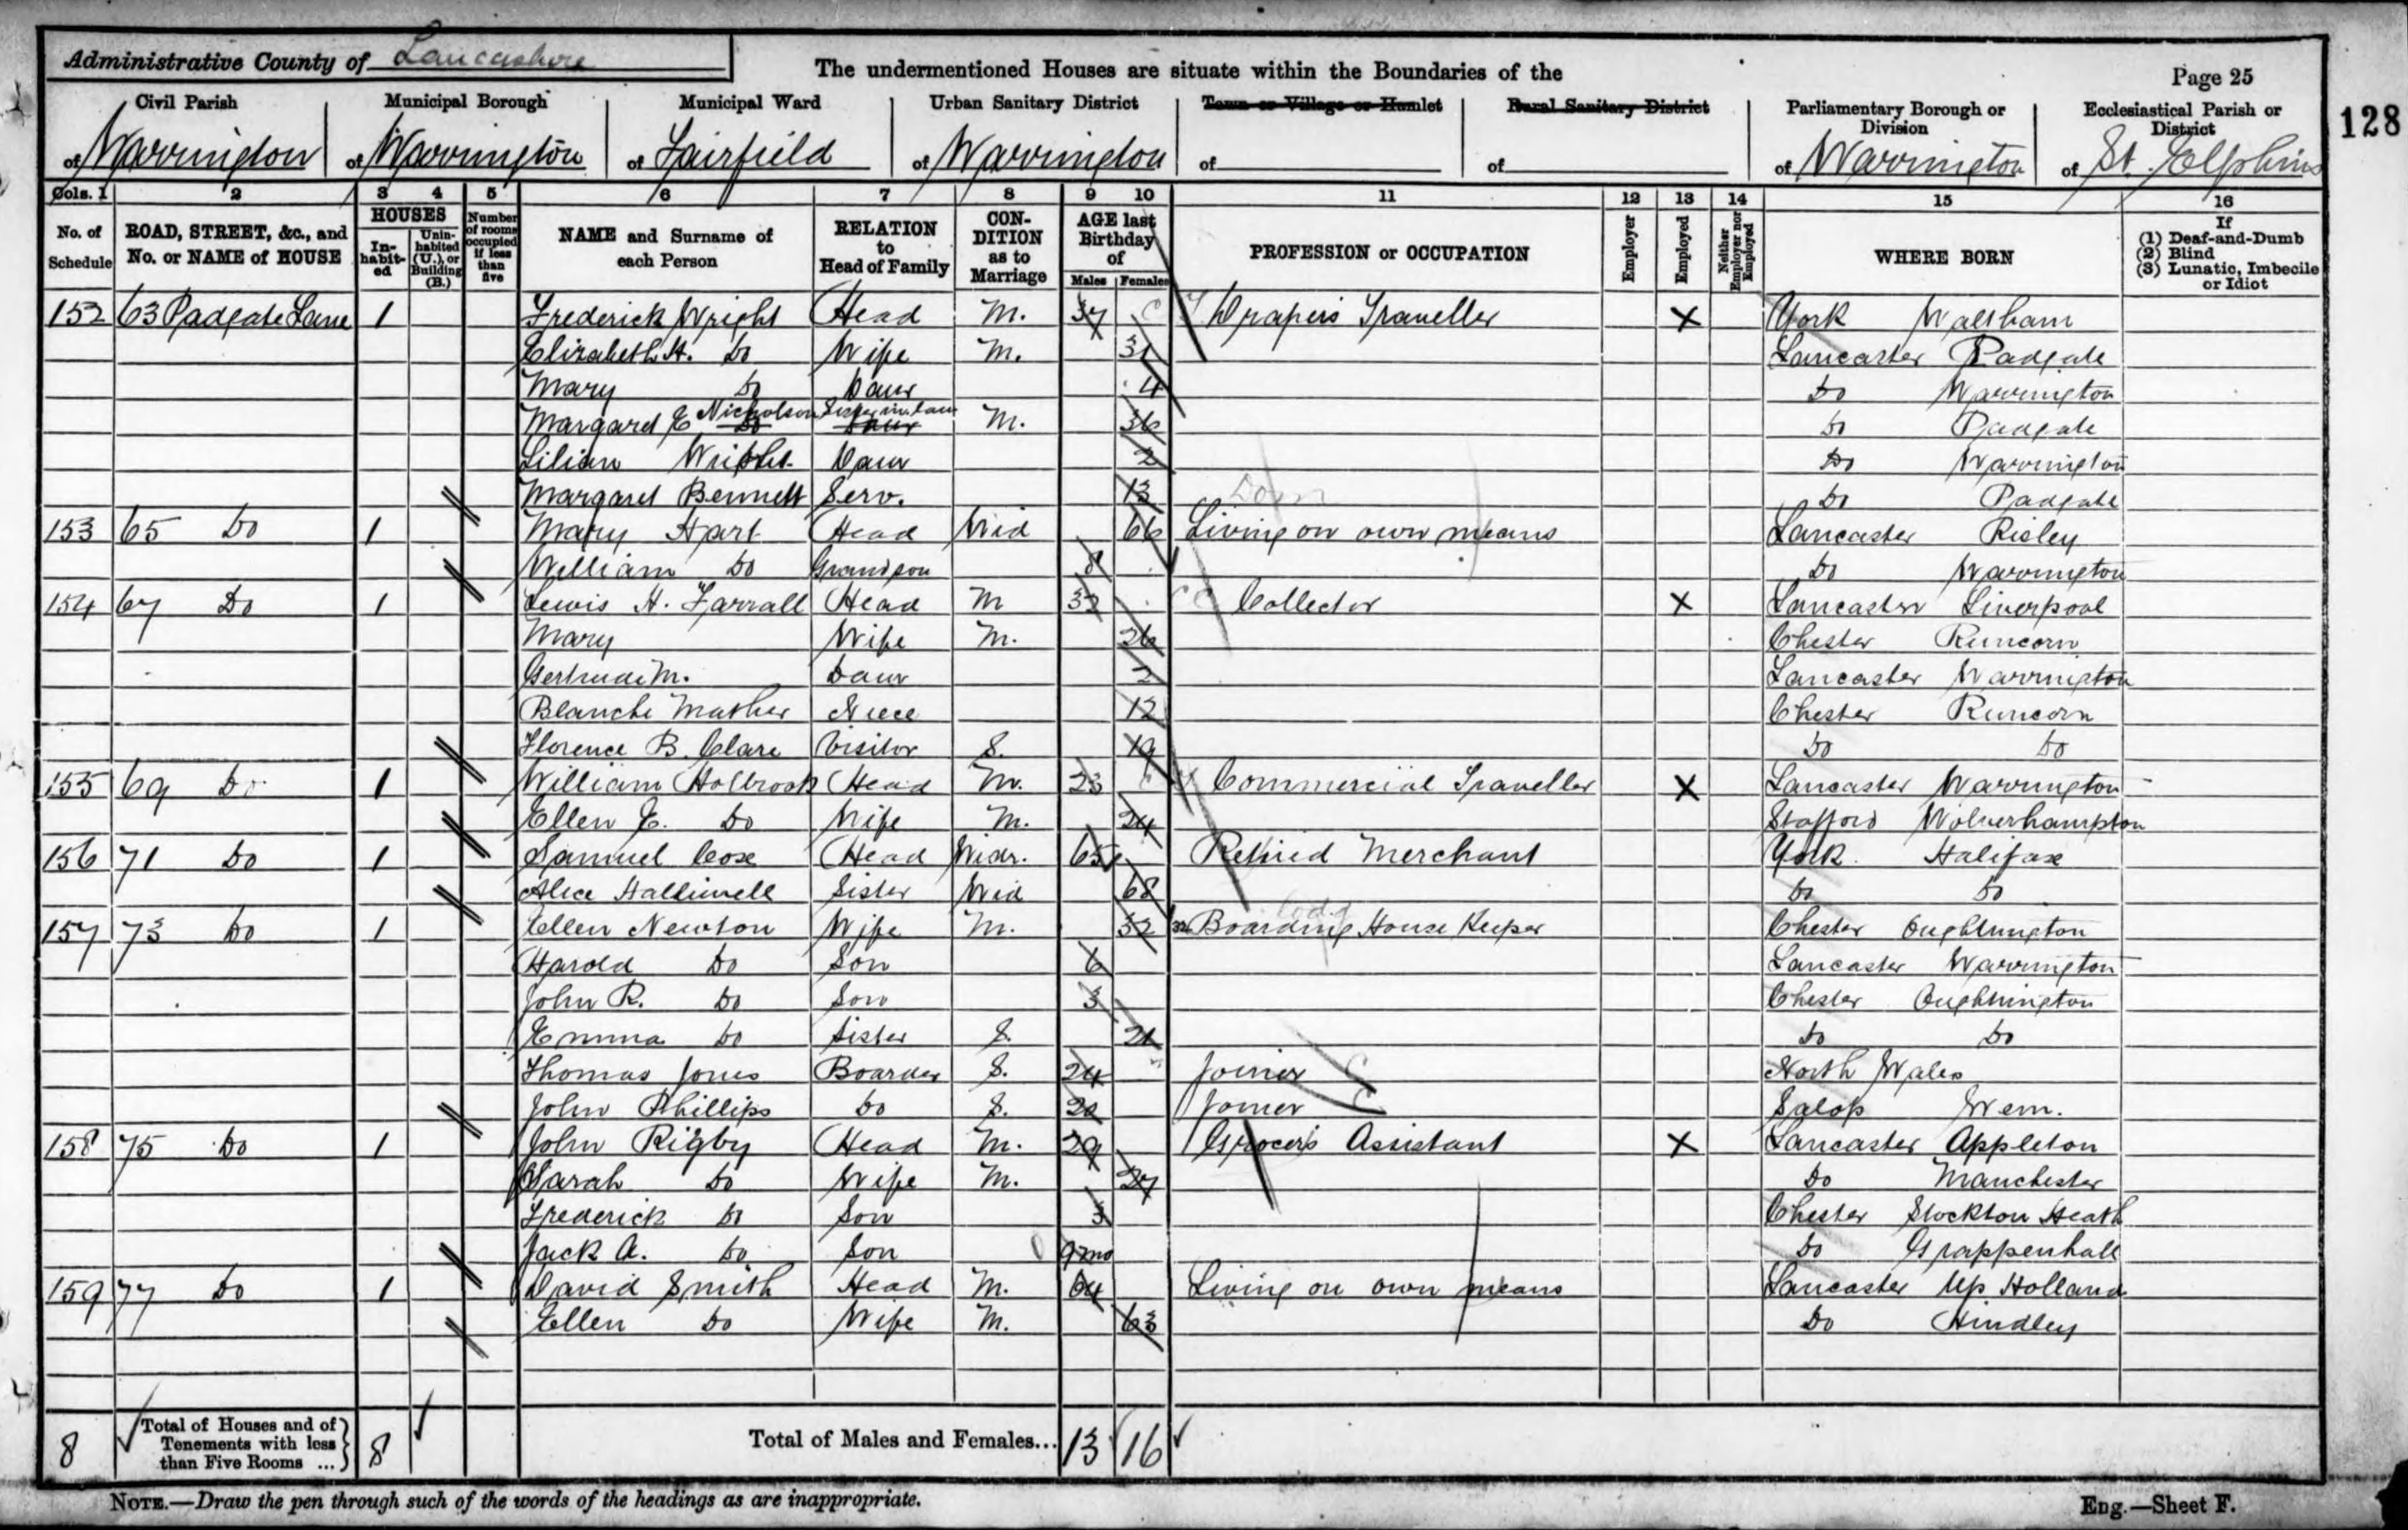 Administrative County of Lancashire
The undermentioned Houses are situate within the Boundaries of the
Page 25
128
Civil Parish of Warrington
Municipal Borough of Warrington
Municipal Ward of Fairfield
Urban Sanitary District of Warrington
Town or Village or Hamlet of
Rural Sanitary District of
Parliamentary Borough or Division of Warrington
Ecclesiastical Parish or District of St. Elphins
Cols. 1 2 3 4 5 6 7 8 9 10 11 12 13 14 15 16
No. of Schedule
ROAD, STREET, &c., and No. or NAME of HOUSE
HOUSES
In-habit-ed
Unin-habited (U.), or Building (B.)
Number of rooms occupied if less than five
NAME and Surname of each Person
RELATION to Head of Family
CON-DITION as to Marriage
AGE last Birthday of
Males Females
PROFESSION or OCCUPATION
Employer
Employed
Neither Employer nor Employed
WHERE BORN
If
(1) Deaf-and-Dumb
(2) Blind
(3) Lunatic, Imbecile or Idiot
152 63 Padgate Lane 1 Frederick Wright Head M. 37 Drapers Traveller X York
Elizabeth H. Do Wife M. 31 Lancaster Padgate
Mary Do Daur 4 Do Warrington
Margaret E Nicholson Do Sister in law Daur M. 36 Do Padgate
Lilian Wright Daur 2 Do Warrington
Margaret Bennett Serv. 13 Dom Do Padgate
153 65 Do 1 Mary Hart Head Wid 66 Living on own means Lancaster Risley
William Do Grandson 8 Do Warrington
154 67 Do 1 Lewis H. Farrall Head M 32 Collector X Lancaster Liverpool
Mary Wife M. 26 Chester Runcorn
Gertrude M. Daur 2 Lancaster Warrington
Blanche Mather Niece 12 Chester Runcorn
Florence B. Clare Visitor S. 19 Do Do
155 69 Do 1 William Holbrook Head M. 23 Commercial Traveller X Lancaster Warrington
Ellen E. Do Wife M. 24 Stafford Wolverhampton
156 71 Do 1 Samuel Coxe Head Widr. 65 Retired Merchant York Halifax
Alice Halliwell Sister Wid 68 Do Do
157 73 Do 1 Ellen Newton Wife M. 32 Boarding House Keeper Chester Oughtrington
Harold Do Son 6 Lancaster Warrington
John R. Do Son 3 Chester Oughtrington
Emma Do Sister S. 21 Do Do
Thomas Jones Boarder S. 24 Joiner North Wales
John Phillips Do S. Joiner Salop Wem.
158 75 Do 1 John Rigby Head M. 29 Grocers Assistant X Lancaster Appleton
Sarah Do Wife M. 27 Do Manchester
Frederick Do Son 3 Chester Stockton Heath
Jack A. Do Son 9 mo Do Grappenhall
159 77 Do 1 David Smith Head M. 64 Living on own means Lancaster Up Holland
Ellen Do Wife M. 63 Do Hindley
8 Total of Houses and of Tenements with less than Five Rooms ... 8 Total of Males and Females... 13 16
NOTE.—Draw the pen through such of the words of the headings as are inappropriate.
Eng.—Sheet F.